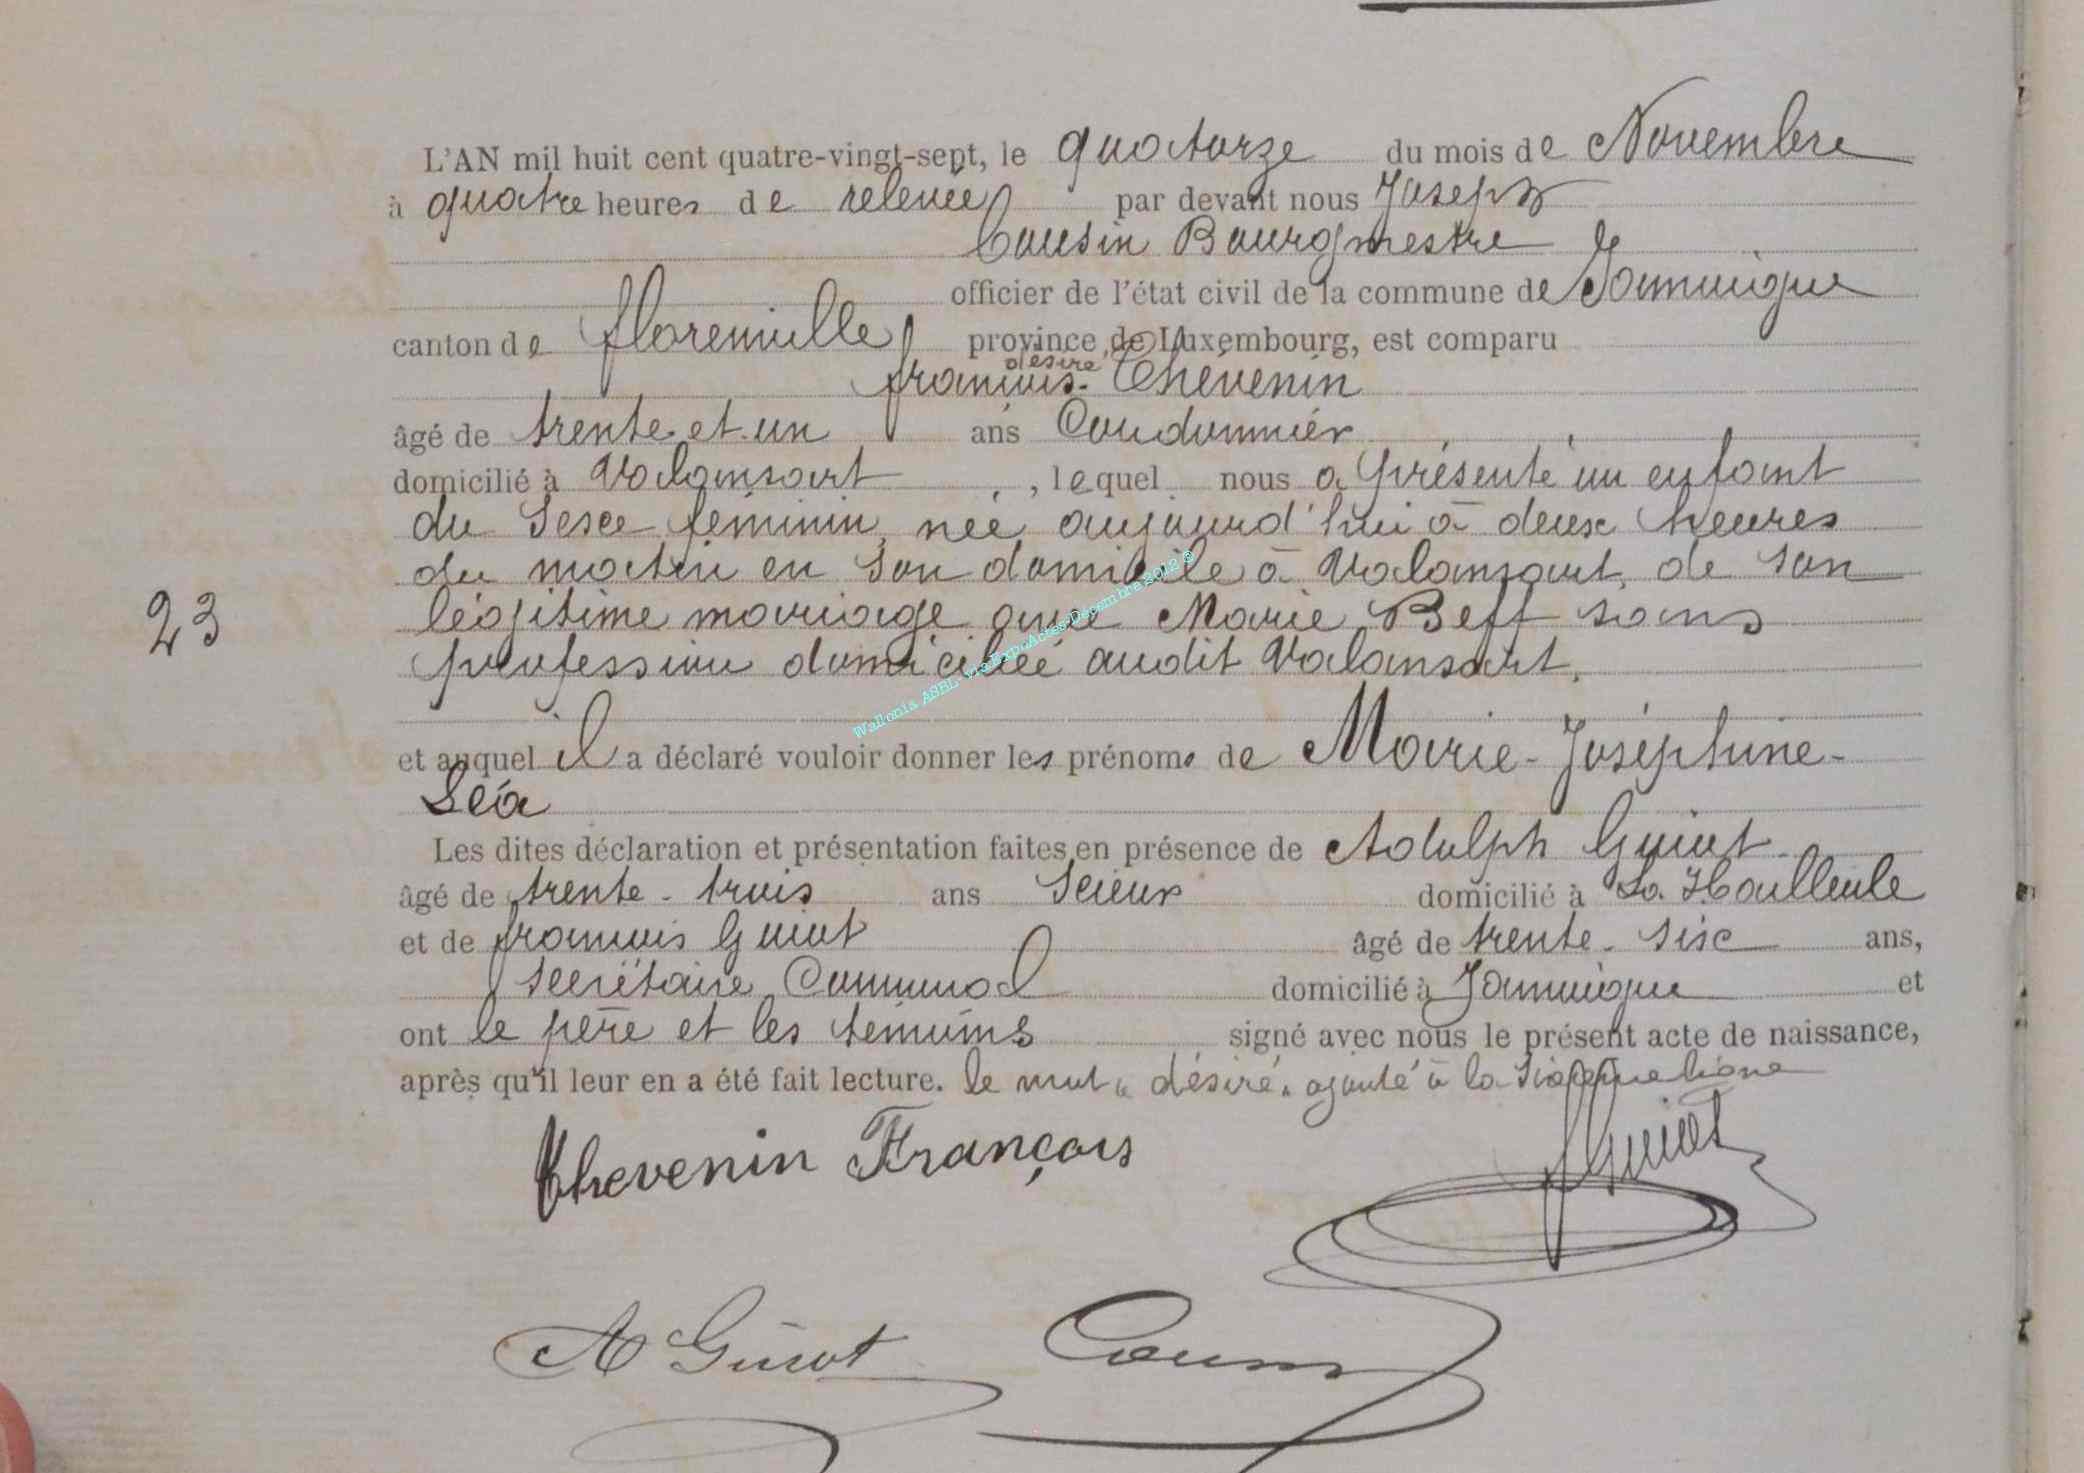 L'AN mil huit cent quatre-vingt-sept, le quatorze du mois de Novembre
à quatre heures de relevée par devant nous Joseph
Cousin Bourgmestre
officier de l'état civil de la commune de Jamoigne
canton de florenville province de Luxembourg, est comparu
désiré
francois- Thévenin
âgé de trente et un ans Cordonnier
domicilié à Valansart, lequel nous a présenté un enfant
du sexe féminin, née aujourd'hui à deux heures
du matin en son domicile à Valansart, de son
légitime mariage avec Marie Beff sans
profession domiciliée audit Valansart.
23
Wallonia ASBL via ExpoActes-Décembre 2012 ©
et auquel il a déclaré vouloir donner les prénoms de Marie-Joséphine-
Léa
Les dites déclaration et présentation faites en présence de Adolph Guiot
âgé de trente-trois ans Scieur domicilié à La Hailleule
et de francois Guiot âgé de trente-six ans,
secrétaire Communal domicilié à Jamoigne et
ont le père et les témoins signé avec nous le présent acte de naissance,
après qu'il leur en a été fait lecture. le mot « désiré » ajouté à la sixième ligne
Thevenin François
Guiot
A Guiot Cousin